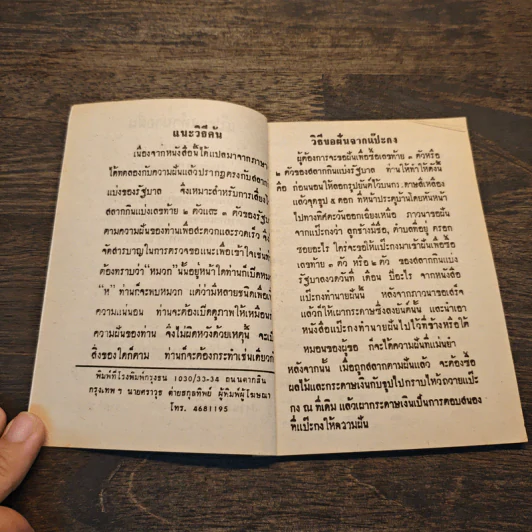 แนะวิธีค้น
เนื่องจากหนังสือนี้ได้แปลมาจากภาษา
ได้ทดลองกับความฝันแล้วปรากฏตรงกับสลาก
แบ่งของรัฐบาล จึงเหมาะสำหรับการเสี่ยงโ
สลากกินแบ่งเลขท้าย ๒ ตัวและ ๓ ตัวของรัฐบ
ตามความฝันของท่านเพื่อสะดวกและรวดเร็ว จึง
จัดสารบาญในการตรวจขอแนะเพื่อเข้าใจเช่นท
ต้องทราบว่า "หมวก" นั้นอยู่หน้าใดท่านก็เปิดหม
"ห" ท่านก็จะพบหมวก แต่ว่ามีหลายชนิดเพื่อเ
ความแน่นอน ท่านจะต้องเปิดดูภาพให้เหมือน
ความฝันของท่าน จึงไม่ผิดหวังด้วยเหตุนี้ จะเป็
สิ่งของใดก็ตาม ท่านก็จะต้องกระทำเช่นเดียวกั
พิมพ์ที่โรงพิมพ์กรุงธน 1030/33-34 ถนนตากสิน
กรุงเทพ ฯ นายศราวุธ ต่ายสกุลทิพย์ ผู้พิมพ์ผู้โฆษณา
โทร. 4681195
วิธีขอฝันจากแป๊ะกง
ผู้ต้องการจะขอฝันเพื่อซื้อเลขท้าย ๓ ตัวหรือ
๒ ตัวของสลากกินแบ่งรัฐบาล ท่านให้ทำให้ดังนี้
คือ ก่อนนอนให้ลอกรูปยันต์ไว้บนกระดาษสีเหลือง
แล้วจุดธูป ๕ ดอก ที่หน้าประตูบ้านโดยหันหน้า
ไปทางทิศตะวันออกเฉียงเหนือ ภาวนาขอฝัน
จากแป๊ะกงว่า ลูกช้างมีชื่อ, ตำบลที่อยู่ ตรอก
ซอยอะไร ใคร่จะขอให้แป๊ะกงมาเข้าฝันเพื่อซื้อ
เลขท้าย ๓ ตัว หรือ ๒ ตัว ของสลากกินแบ่ง
รัฐบาลงวดวันที่ เดือน ปีอะไร จากหนังสือ
แป๊ะกงทำนายฝันนี้ หลังจากภาวนาขอเสร็จ
แล้วก็ให้เผากระดาษซึ่งลงยันต์นั้น และนำเอา
หนังสือแป๊ะกงทำนายฝันไปไว้ที่ข้างหรือใต้
หมอนของผู้ขอ ก็จะได้ความฝันที่แม่นยำ
หลังจากนั้น เมื่อถูกสลากตามฝันแล้ว จะต้องซื้อ
ผลไม้และกระดาษเงินกับธูปไปกราบไหว้ถวายแป๊ะ
กง ณ ที่เดิม แล้วเผากระดาษเงินเป็นการตอบสนอง
ที่แป๊ะกงให้ความฝัน